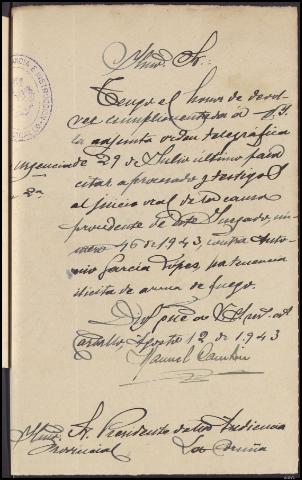 Ilmo. Sr.:
Tengo el honor de devol
ver cumplimentada a V.I.
la adjunta orden telegráfica
urgencia de 29 de Julio último para
citar a procesado y testigos
al juicio oral de la causa
procedente de este Juzgado, nú
mero 46 de 1943, contra Anto
nio García López, por tenencia
ilícita de arma de fuego.
Dios guê a V.I.
Carballo, Agosto 12 de 1943
Manuel
Ilmo. Sr. Presidente de la Audiencia
Provincial La Coruña